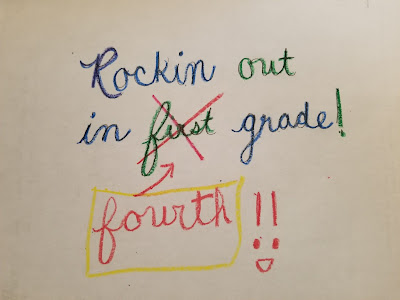 Rockin out
in first grade!
fourth!!